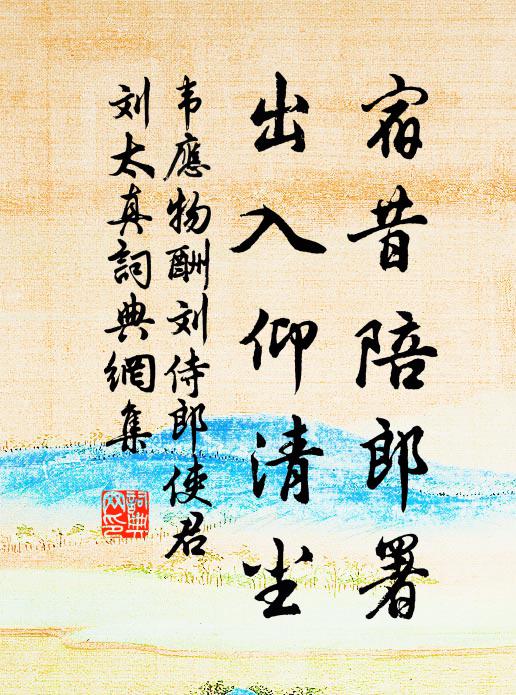 宿昔陪郎署
出入仰清尘
韦應物酬刘侍郎使君
刘太真詞典網集